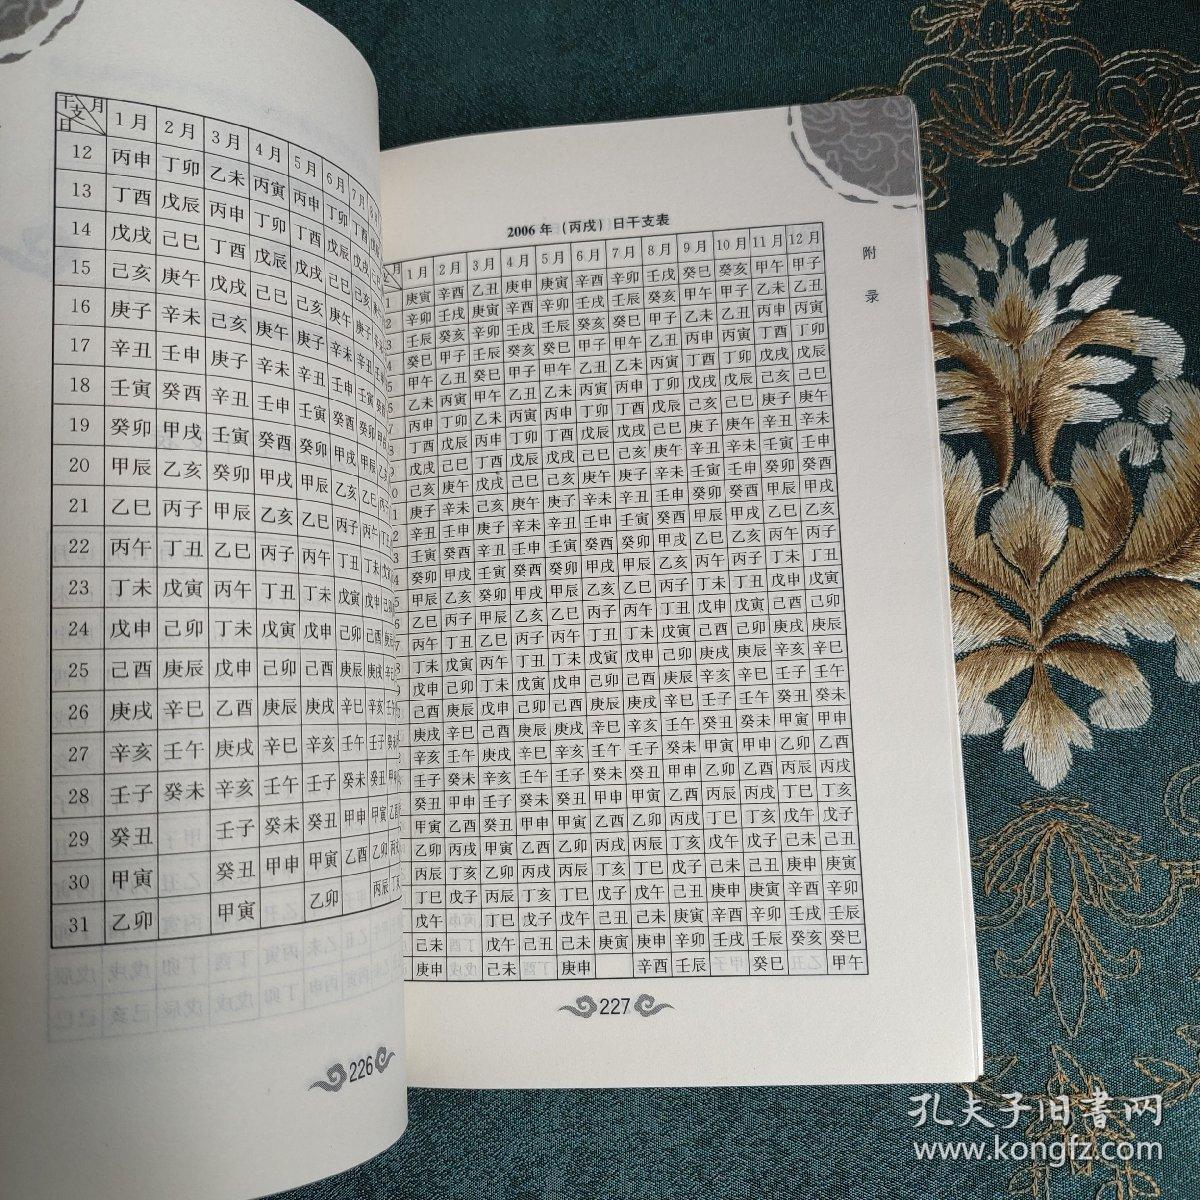 干支 月 日 1月 2月 3月 4月 5月 6月 7月
12 丙申 丁卯 乙未 丙寅 丙申 丁卯 丁酉
13 丁酉 戊辰 丙申 丁卯 丁酉 戊辰 戊戌
14 戊戌 己巳 丁酉 戊辰 戊戌 己巳 己亥
15 己亥 庚午 戊戌 己巳 己亥 庚午 庚子
16 庚子 辛未 己亥 庚午 庚子 辛未 辛丑
17 辛丑 壬申 庚子 辛未 辛丑 壬申 壬寅
18 壬寅 癸酉 辛丑 壬申 壬寅 癸酉 癸卯
19 癸卯 甲戌 壬寅 癸酉 癸卯 甲戌 甲辰
20 甲辰 乙亥 癸卯 甲戌 甲辰 乙亥 乙巳
21 乙巳 丙子 甲辰 乙亥 乙巳 丙子 丙午
22 丙午 丁丑 乙巳 丙子 丙午 丁丑 丁未
23 丁未 戊寅 丙午 丁丑 丁未 戊寅 戊申
24 戊申 己卯 丁未 戊寅 戊申 己卯 己酉
25 己酉 庚辰 戊申 己卯 己酉 庚辰 庚戌
26 庚戌 辛巳 己酉 庚辰 庚戌 辛巳 辛亥
27 辛亥 壬午 庚戌 辛巳 辛亥 壬午 壬子
28 壬子 癸未 辛亥 壬午 壬子 癸未 癸丑
29 癸丑 壬子 癸未 癸丑 甲申 甲寅
30 甲寅 癸丑 甲申 甲寅 乙酉 乙卯
31 乙卯 甲寅 乙卯 丙辰
226
2006年（丙戌）日干支表
月 1月 2月 3月 4月 5月 6月 7月 8月 9月 10月 11月 12月
庚寅 辛酉 己丑 庚申 庚寅 辛酉 辛卯 壬戌 癸巳 癸亥 甲午 甲子
辛卯 壬戌 庚寅 辛酉 辛卯 壬戌 壬辰 癸亥 甲午 甲子 乙未 乙丑
壬辰 癸亥 辛卯 壬戌 壬辰 癸亥 癸巳 甲子 乙未 乙丑 丙申 丙寅
癸巳 甲子 壬辰 癸亥 癸巳 甲子 甲午 乙丑 丙申 丙寅 丁酉 丁卯
甲午 乙丑 癸巳 甲子 甲午 乙丑 乙未 丙寅 丁酉 丁卯 戊戌 戊辰
乙未 丙寅 甲午 乙丑 乙未 丙寅 丙申 丁卯 戊戌 戊辰 己亥 己巳
丙申 丁卯 乙未 丙寅 丙申 丁卯 丁酉 戊辰 己亥 己巳 庚子 庚午
丁酉 戊辰 丙申 丁卯 丁酉 戊辰 戊戌 己巳 庚子 庚午 辛丑 辛未
戊戌 己巳 丁酉 戊辰 戊戌 己巳 己亥 庚午 辛丑 辛未 壬寅 壬申
己亥 庚午 戊戌 己巳 己亥 庚午 庚子 辛未 壬寅 壬申 癸卯 癸酉
庚子 辛未 己亥 庚午 庚子 辛未 辛丑 壬申 癸卯 癸酉 甲辰 甲戌
辛丑 壬申 庚子 辛未 辛丑 壬申 壬寅 癸酉 甲辰 甲戌 乙巳 乙亥
壬寅 癸酉 辛丑 壬申 壬寅 癸酉 癸卯 甲戌 乙巳 乙亥 丙午 丙子
癸卯 甲戌 壬寅 癸酉 癸卯 甲戌 甲辰 乙亥 丙午 丙子 丁未 丁丑
甲辰 乙亥 癸卯 甲戌 甲辰 乙亥 乙巳 丙子 丁未 丁丑 戊申 戊寅
乙巳 丙子 甲辰 乙亥 乙巳 丙子 丙午 丁丑 戊申 戊寅 己酉 己卯
丙午 丁丑 乙巳 丙子 丙午 丁丑 丁未 戊寅 己酉 己卯 庚戌 庚辰
丁未 戊寅 丙午 丁丑 丁未 戊寅 戊申 己卯 庚戌 庚辰 辛亥 辛巳
戊申 己卯 丁未 戊寅 戊申 己卯 己酉 庚辰 辛亥 辛巳 壬子 壬午
己酉 庚辰 戊申 己卯 己酉 庚辰 庚戌 辛巳 壬子 壬午 癸丑 癸未
庚戌 辛巳 己酉 庚辰 庚戌 辛巳 辛亥 壬午 癸丑 癸未 甲寅 甲申
辛亥 壬午 庚戌 辛巳 辛亥 壬午 壬子 癸未 甲寅 甲申 乙卯 乙酉
壬子 癸未 辛亥 壬午 壬子 癸未 癸丑 甲申 乙卯 乙酉 丙辰 丙戌
癸丑 甲申 壬子 癸未 癸丑 甲申 甲寅 乙酉 丙辰 丙戌 丁巳 丁亥
甲寅 乙酉 癸丑 甲申 甲寅 乙酉 乙卯 丙戌 丁巳 丁亥 戊午 戊子
乙卯 丙戌 甲寅 乙酉 乙卯 丙戌 丙辰 丁亥 戊午 戊子 己未 己丑
丙辰 丁亥 乙卯 丙戌 丙辰 丁亥 丁巳 戊子 己未 己丑 庚申 庚寅
丁巳 戊子 丙辰 丁亥 丁巳 戊子 戊午 己丑 庚申 庚寅 辛酉 辛卯
戊午 丁巳 戊子 戊午 己丑 己未 庚寅 辛酉 辛卯 壬戌 壬辰
己未 戊午 己丑 己未 庚寅 庚申 辛卯 壬戌 壬辰 癸亥 癸巳
庚申 己未 庚申 辛酉 壬辰 癸巳 甲午
227
附录
孔夫子旧书网
www.kongfz.com